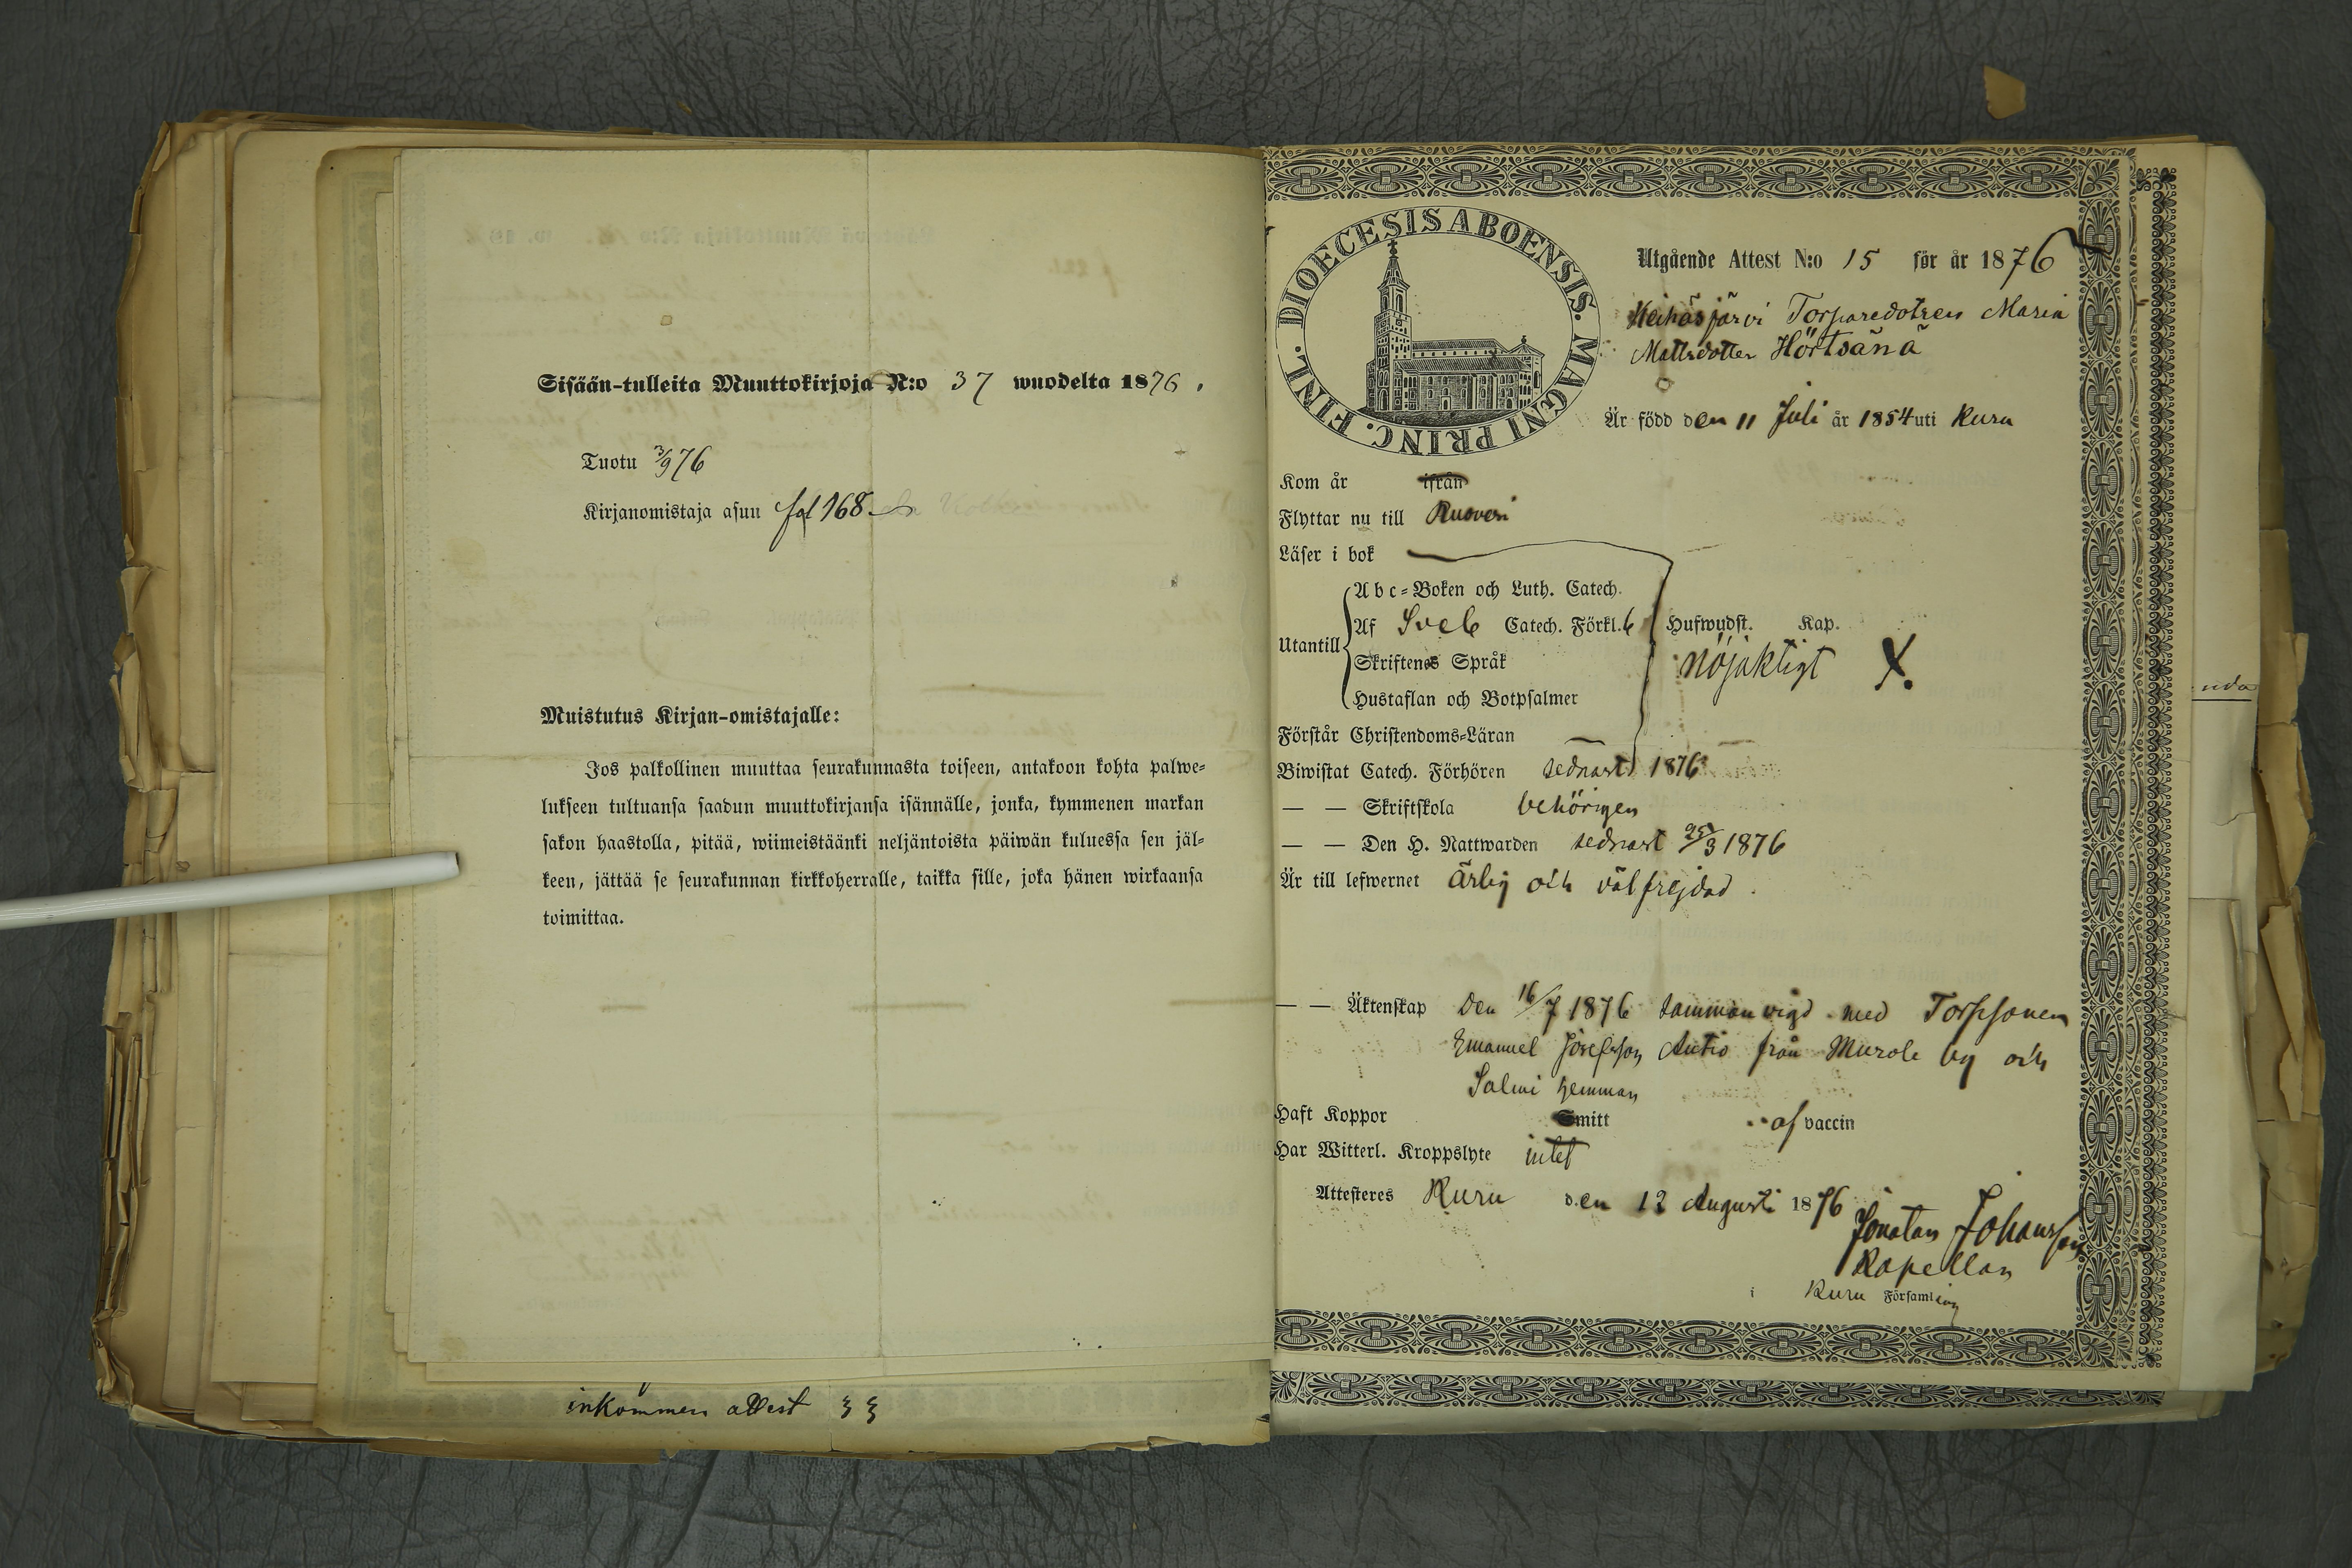 Sisään-tulleita Muuttokirjoja N:o 37 wuodelta 1876.
Tuotu 3/9 76
Kirjanomistaja asuu fol 168
Muistutus Kirjan-omistajalle:
Jos palkollinen muuttaa seurakunnasta toiseen, antakoon kohta palwe-
lukseen tultuansa saadun muuttokirjansa isännälle, jonka, kymmenen markan
sakon haastolla, pitää, wiimeistäänki neljäntoista päiwän kuluessa sen jäl-
keen, jättää se seurakunnan kirkkoherralle, taikka sille, joka hänen wirkaansa
toimittaa.
inkommen attest
FINL. DIOECESIS ABOENSIS. MAGNI PRINC.
Utgående Attest N:o 15 för år 1876
järvi Torparedotren Maria
Mattsdotter Hörtsänä
Är född den 11 Juli år 1854 uti Kuru
Kom år ifrån
Flyttar nu till Ruovesi
Läser i bok
Utantill
Abc-Boken och Luth. Catech.
Af Sveb Catech. Förkl. Hufwudst. Kap.
Skriftenes Språk nöjaktigt X.
Hustaflan och Botpsalmer
Förstår Christendoms-Läran
Biwistat Catech. Förhören sednast 1876
— — Skriftskola behörigen
— — Den H. Nattwarden sednast 25/3 1876
Är till lefwernet ärlig och välfrejdad.
— — Äktenskap Den 16/7 1876 sammanvigd med Torpsonen
Emanuel Josefsson Autio från Murole by och
Salmi hemman
Haft Koppor Smitt af vaccin
Har Witterl. Kroppslyte intet
Attesteres Kuru den 12 Augusti 1876
Jonatan Johansson
Kapellan
i Kuru Församling